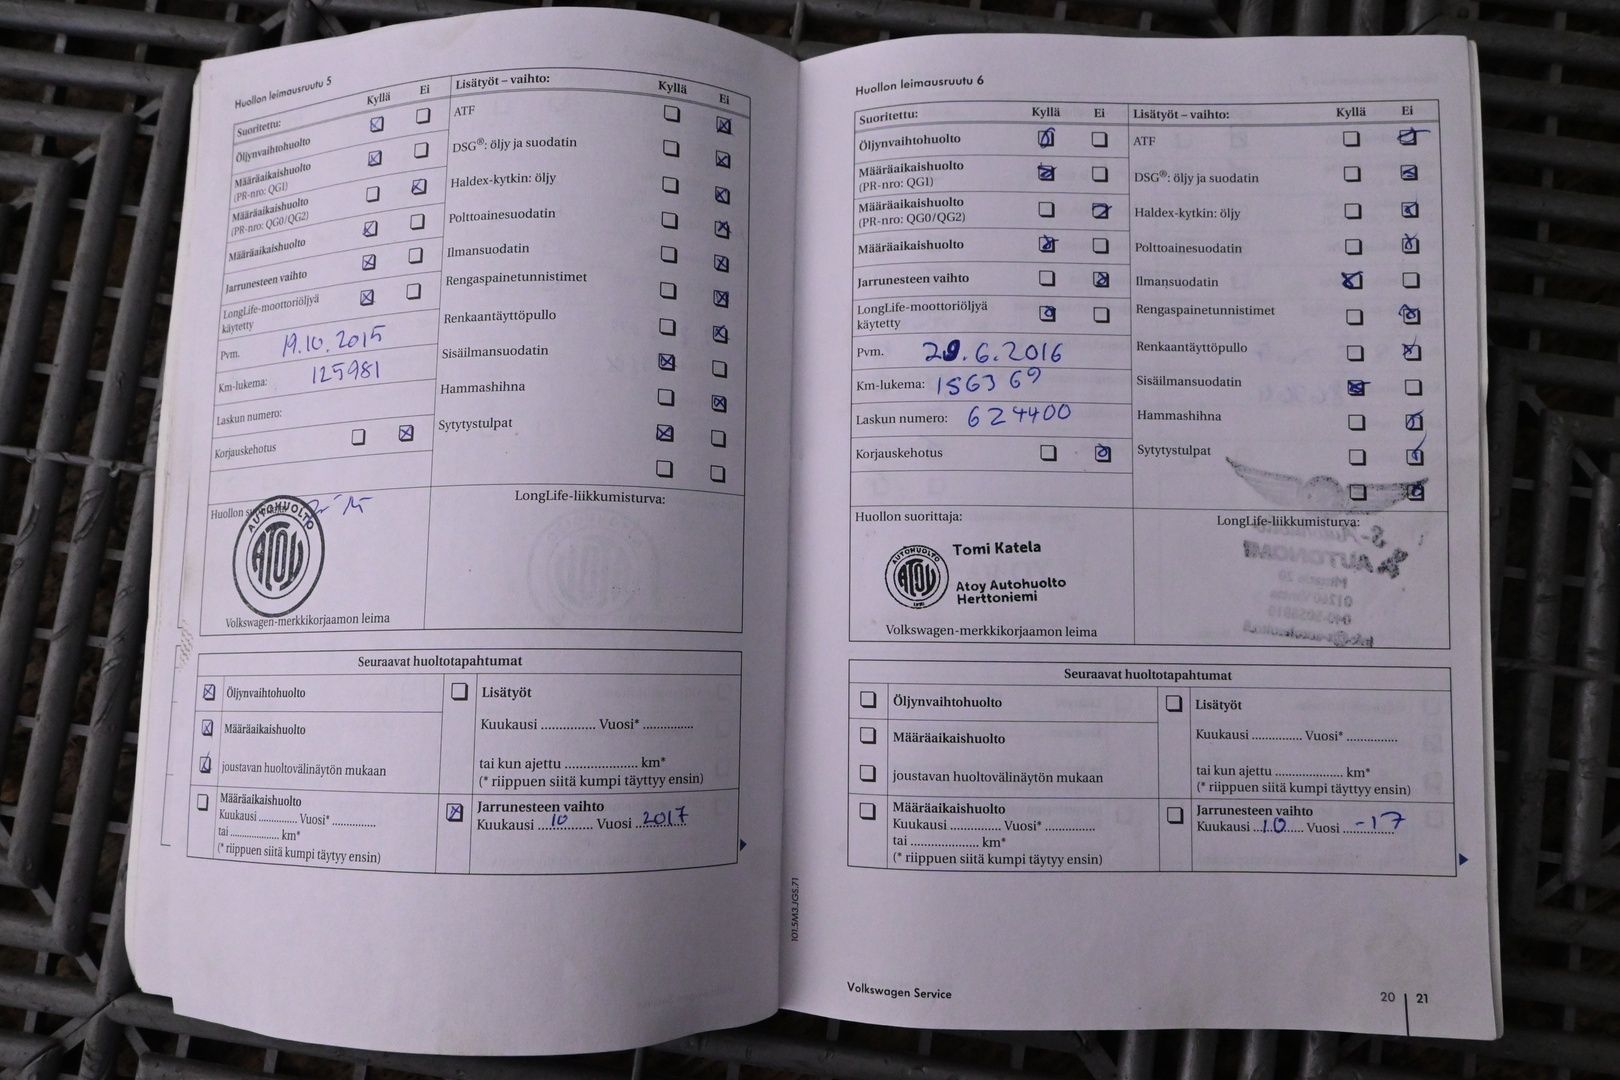 Huollon leimausruutu 5
Suoritettu: Kyllä Ei
Öljynvaihtohuolto
Määräaikaishuolto
(PR-nro: QG1)
Määräaikaishuolto
(PR-nro: QG0/QG2)
Määräaikaishuolto
Jarrunesteen vaihto
LongLife-moottoriöljyä
käytetty
Pvm. 19.10.2015
Km-lukema: 125981
Laskun numero:
Korjauskehotus
Lisätyöt – vaihto: Kyllä Ei
ATF
DSG®: öljy ja suodatin
Haldex-kytkin: öljy
Polttoainesuodatin
Ilmansuodatin
Rengaspainetunnistimet
Renkaantäyttöpullo
Sisäilmansuodatin
Hammashihna
Sytytystulpat
Huollon
AUTOHUOLTO
ATOY
Volkswagen-merkkikorjaamon leima
LongLife-liikkumisturva:
Seuraavat huoltotapahtumat
Öljynvaihtohuolto
Määräaikaishuolto
joustavan huoltovälinäytön mukaan
Määräaikaishuolto
Kuukausi ............. Vuosi* ..............
tai ................ km*
(* riippuen siitä kumpi täytyy ensin)
Lisätyöt
Kuukausi ............... Vuosi* ..............
tai kun ajettu .................... km*
(* riippuen siitä kumpi täyttyy ensin)
Jarrunesteen vaihto
Kuukausi 10 Vuosi 2017
101.5M3.JGS.71
Huollon leimausruutu 6
Suoritettu: Kyllä Ei
Öljynvaihtohuolto
Määräaikaishuolto
(PR-nro: QG1)
Määräaikaishuolto
(PR-nro: QG0/QG2)
Määräaikaishuolto
Jarrunesteen vaihto
LongLife-moottoriöljyä
käytetty
Pvm. 29.6.2016
Km-lukema: 156369
Laskun numero: 624400
Korjauskehotus
Lisätyöt – vaihto: Kyllä Ei
ATF
DSG®: öljy ja suodatin
Haldex-kytkin: öljy
Polttoainesuodatin
Ilmansuodatin
Rengaspainetunnistimet
Renkaantäyttöpullo
Sisäilmansuodatin
Hammashihna
Sytytystulpat
Huollon suorittaja:
AUTOHUOLTO
ATOY
Tomi Katela
Atoy Autohuolto
Herttoniemi
Volkswagen-merkkikorjaamon leima
LongLife-liikkumisturva:
Seuraavat huoltotapahtumat
Öljynvaihtohuolto
Määräaikaishuolto
joustavan huoltovälinäytön mukaan
Määräaikaishuolto
Kuukausi ............... Vuosi* ...............
tai .................... km*
(* riippuen siitä kumpi täytyy ensin)
Lisätyöt
Kuukausi ............... Vuosi* ...............
tai kun ajettu .................... km*
(* riippuen siitä kumpi täyttyy ensin)
Jarrunesteen vaihto
Kuukausi 10 Vuosi -17
Volkswagen Service
20 | 21